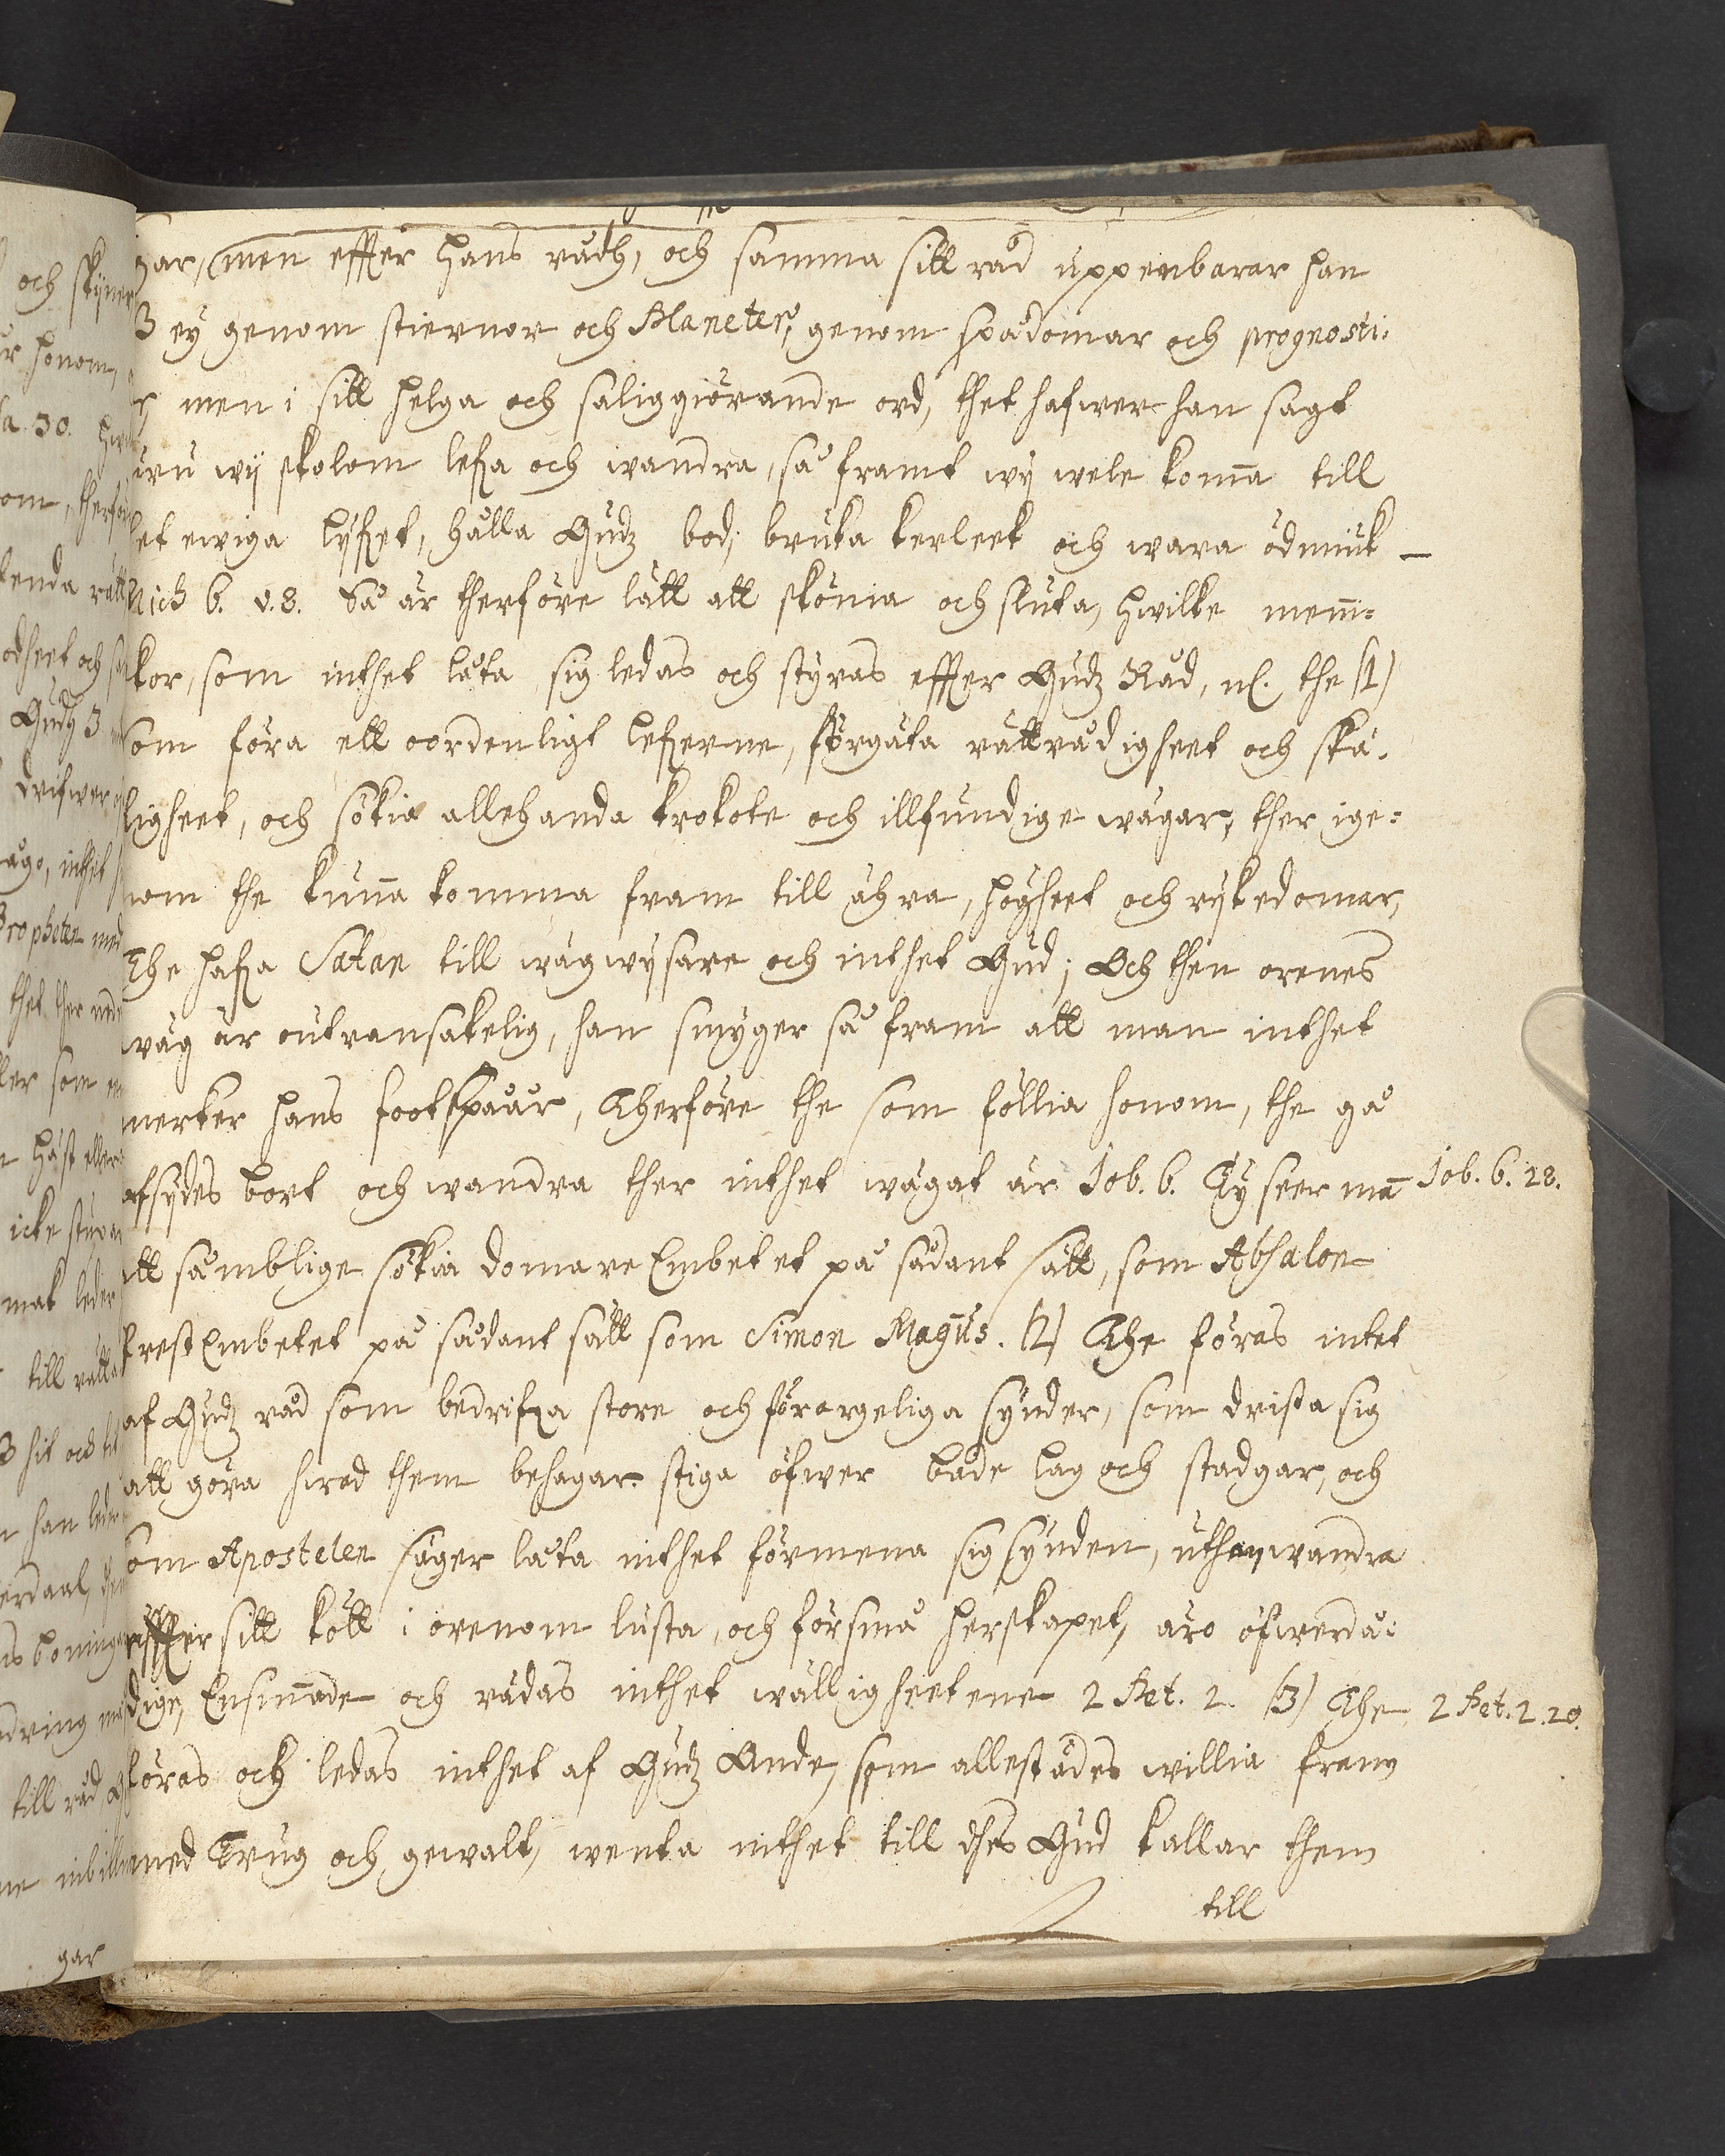 gar, men effter hans rådh, och samma sitt råd uppenbarar han
ey genom stiernor och Planeter, genom spådomar och prognosti:
men i sitt helga och saliggiörande ord, thet hafwer han sagt
uru wij skolom lefva och wandra, så framt wij wele kom̅a till
et ewiga lijfvet, hålla Gudz bod, bruka kerleek och wara ödmiuk
Mich 6. v. 8. Så är therföre lätt att skönia och sluta, hwilke men̅i=
kor, som inthet låta sig ledas och styras effter Gudz Råd, nl. the (1)
som föra ett oordenligt lefverne, förgäta rättrådigheet och skä=
ligheet, och sökia allehanda krokote och illfundige wägar, ther ige=
nom the kun̅a komma fram till ähra, högheet och rijkedomar,
The hafva Satan till wägwijsare och inthet Gud; Och then orenes
wäg är outransakelig, han smyger så fram att man inthet
merker hans footspåår, Therföre the som föllia honom, the gå
afsijdes bort och wandra ther inthet wägat är Job. 6. Ty seer ma̅ Job. 6. 18.
tt såmblige sökia domare Embetet på sådant sätt, som Absalon
Prest Embetet på sådant sätt som Simon Magus. (2) The föras intet
af Gudz råd som bedrifva store och förargeliga synder, som drista sig
att göra hwad them behagar stiga öfwer både lag och stadgar, och
som Apostelen säger låta inthet förmena sig synden, uthan wandra
effter sitt kött i orenom lusta, och försmå herskapet, äro öfwerdå:
dige, Ensin̅ade och rädas inthet wälligheetene 2 Pet. 2. (3) The 2 Pet. 2. 20.
föras och ledas inthet af Gudz Ande, som allestädes willia fram
med Trug och gewalt, wenta inthet till dhes Gud kallar them
till